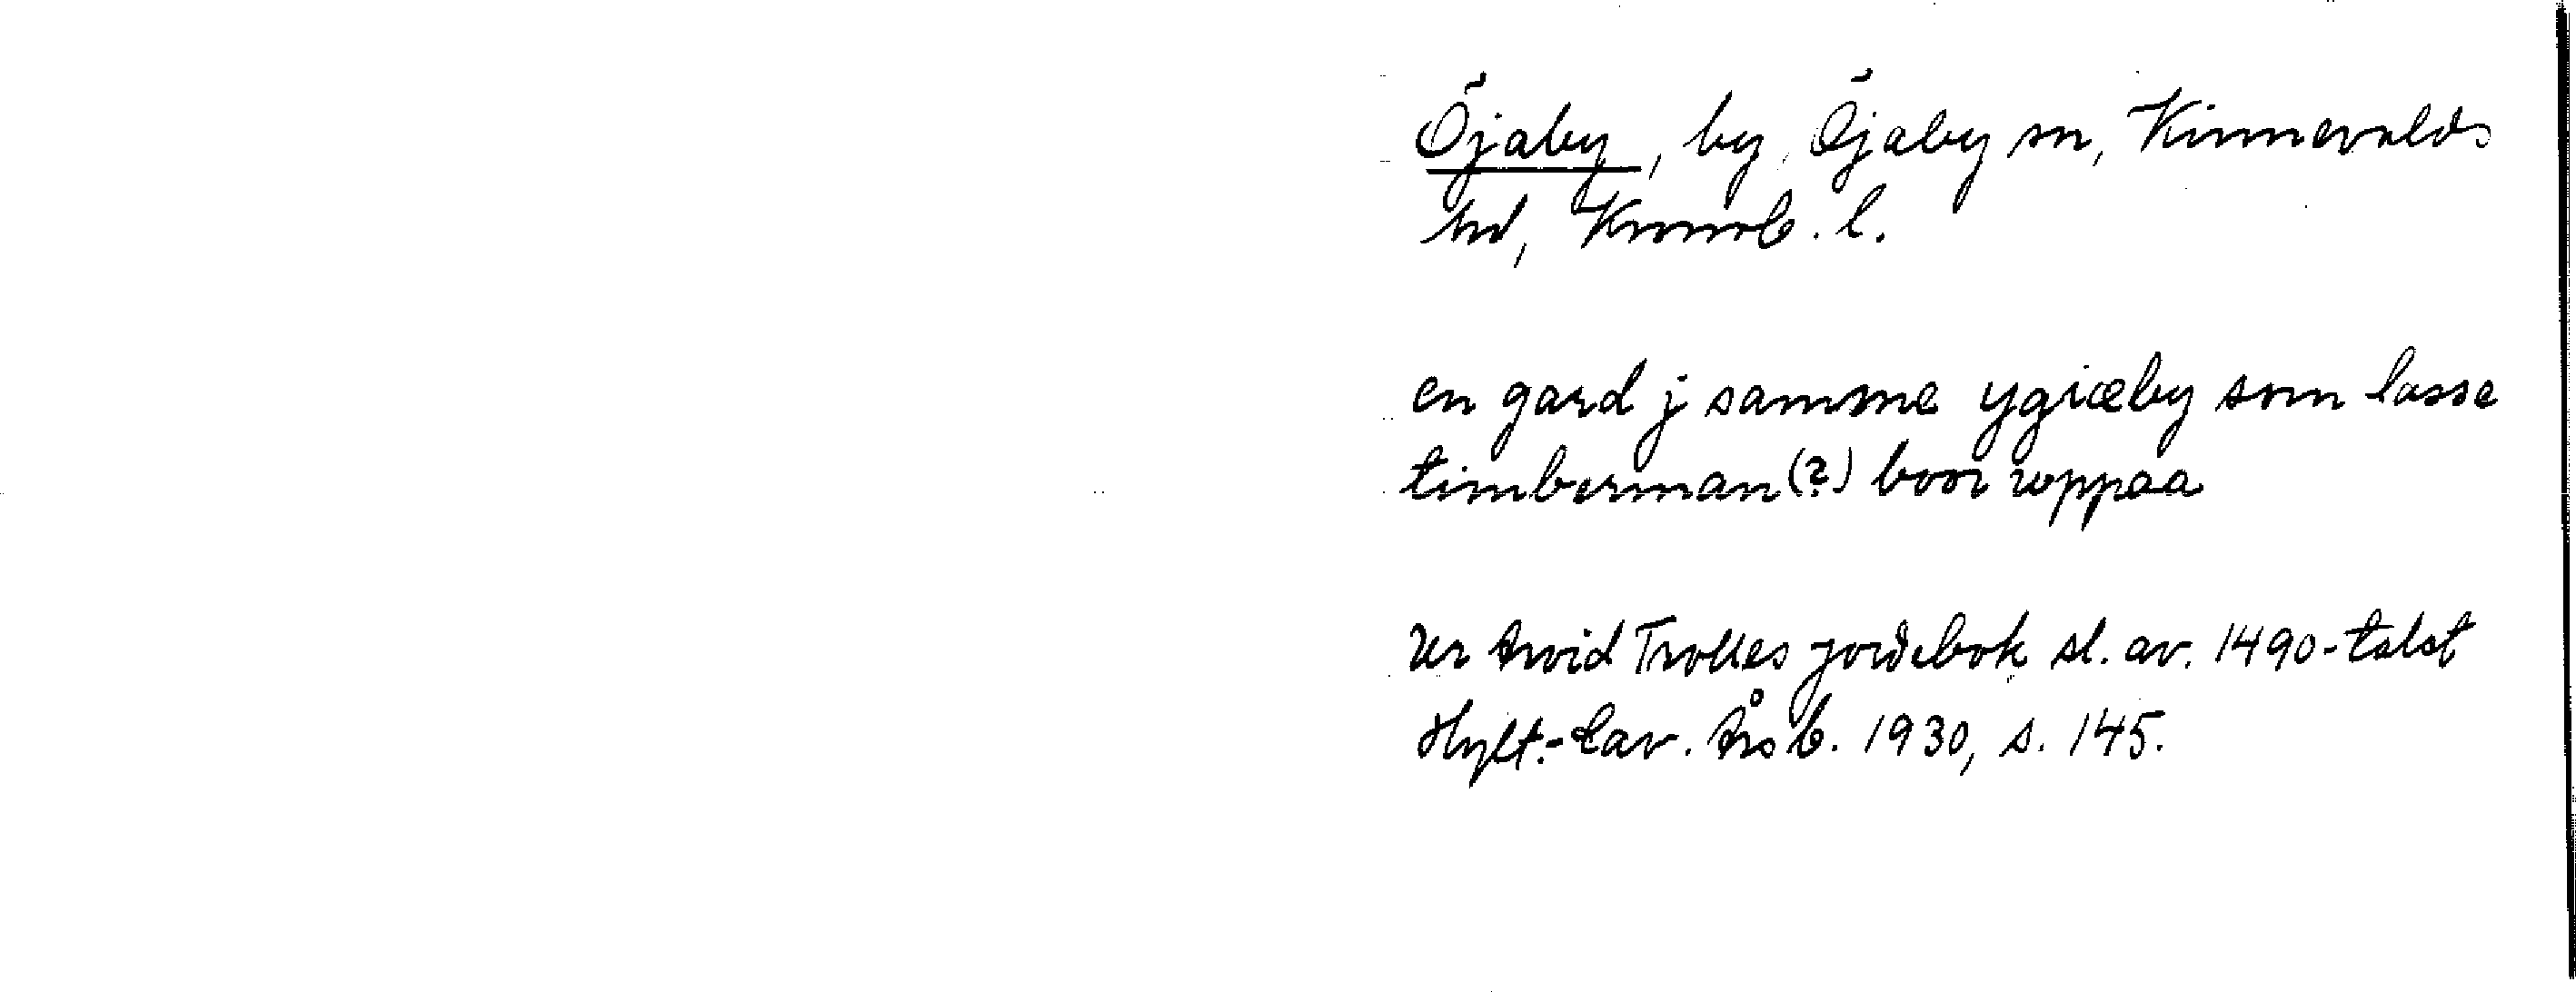 Öjaby, by, Öjaby sn, Kinnevalds
hd, Kronob. l.
en gard j samme ygiæby som lasse
timberman (?) boor woppaa
Ur Arvid Trolles jordebok sl. av. 1490-talet
Hylt.-Cav. Årsb. 1930, s. 145.